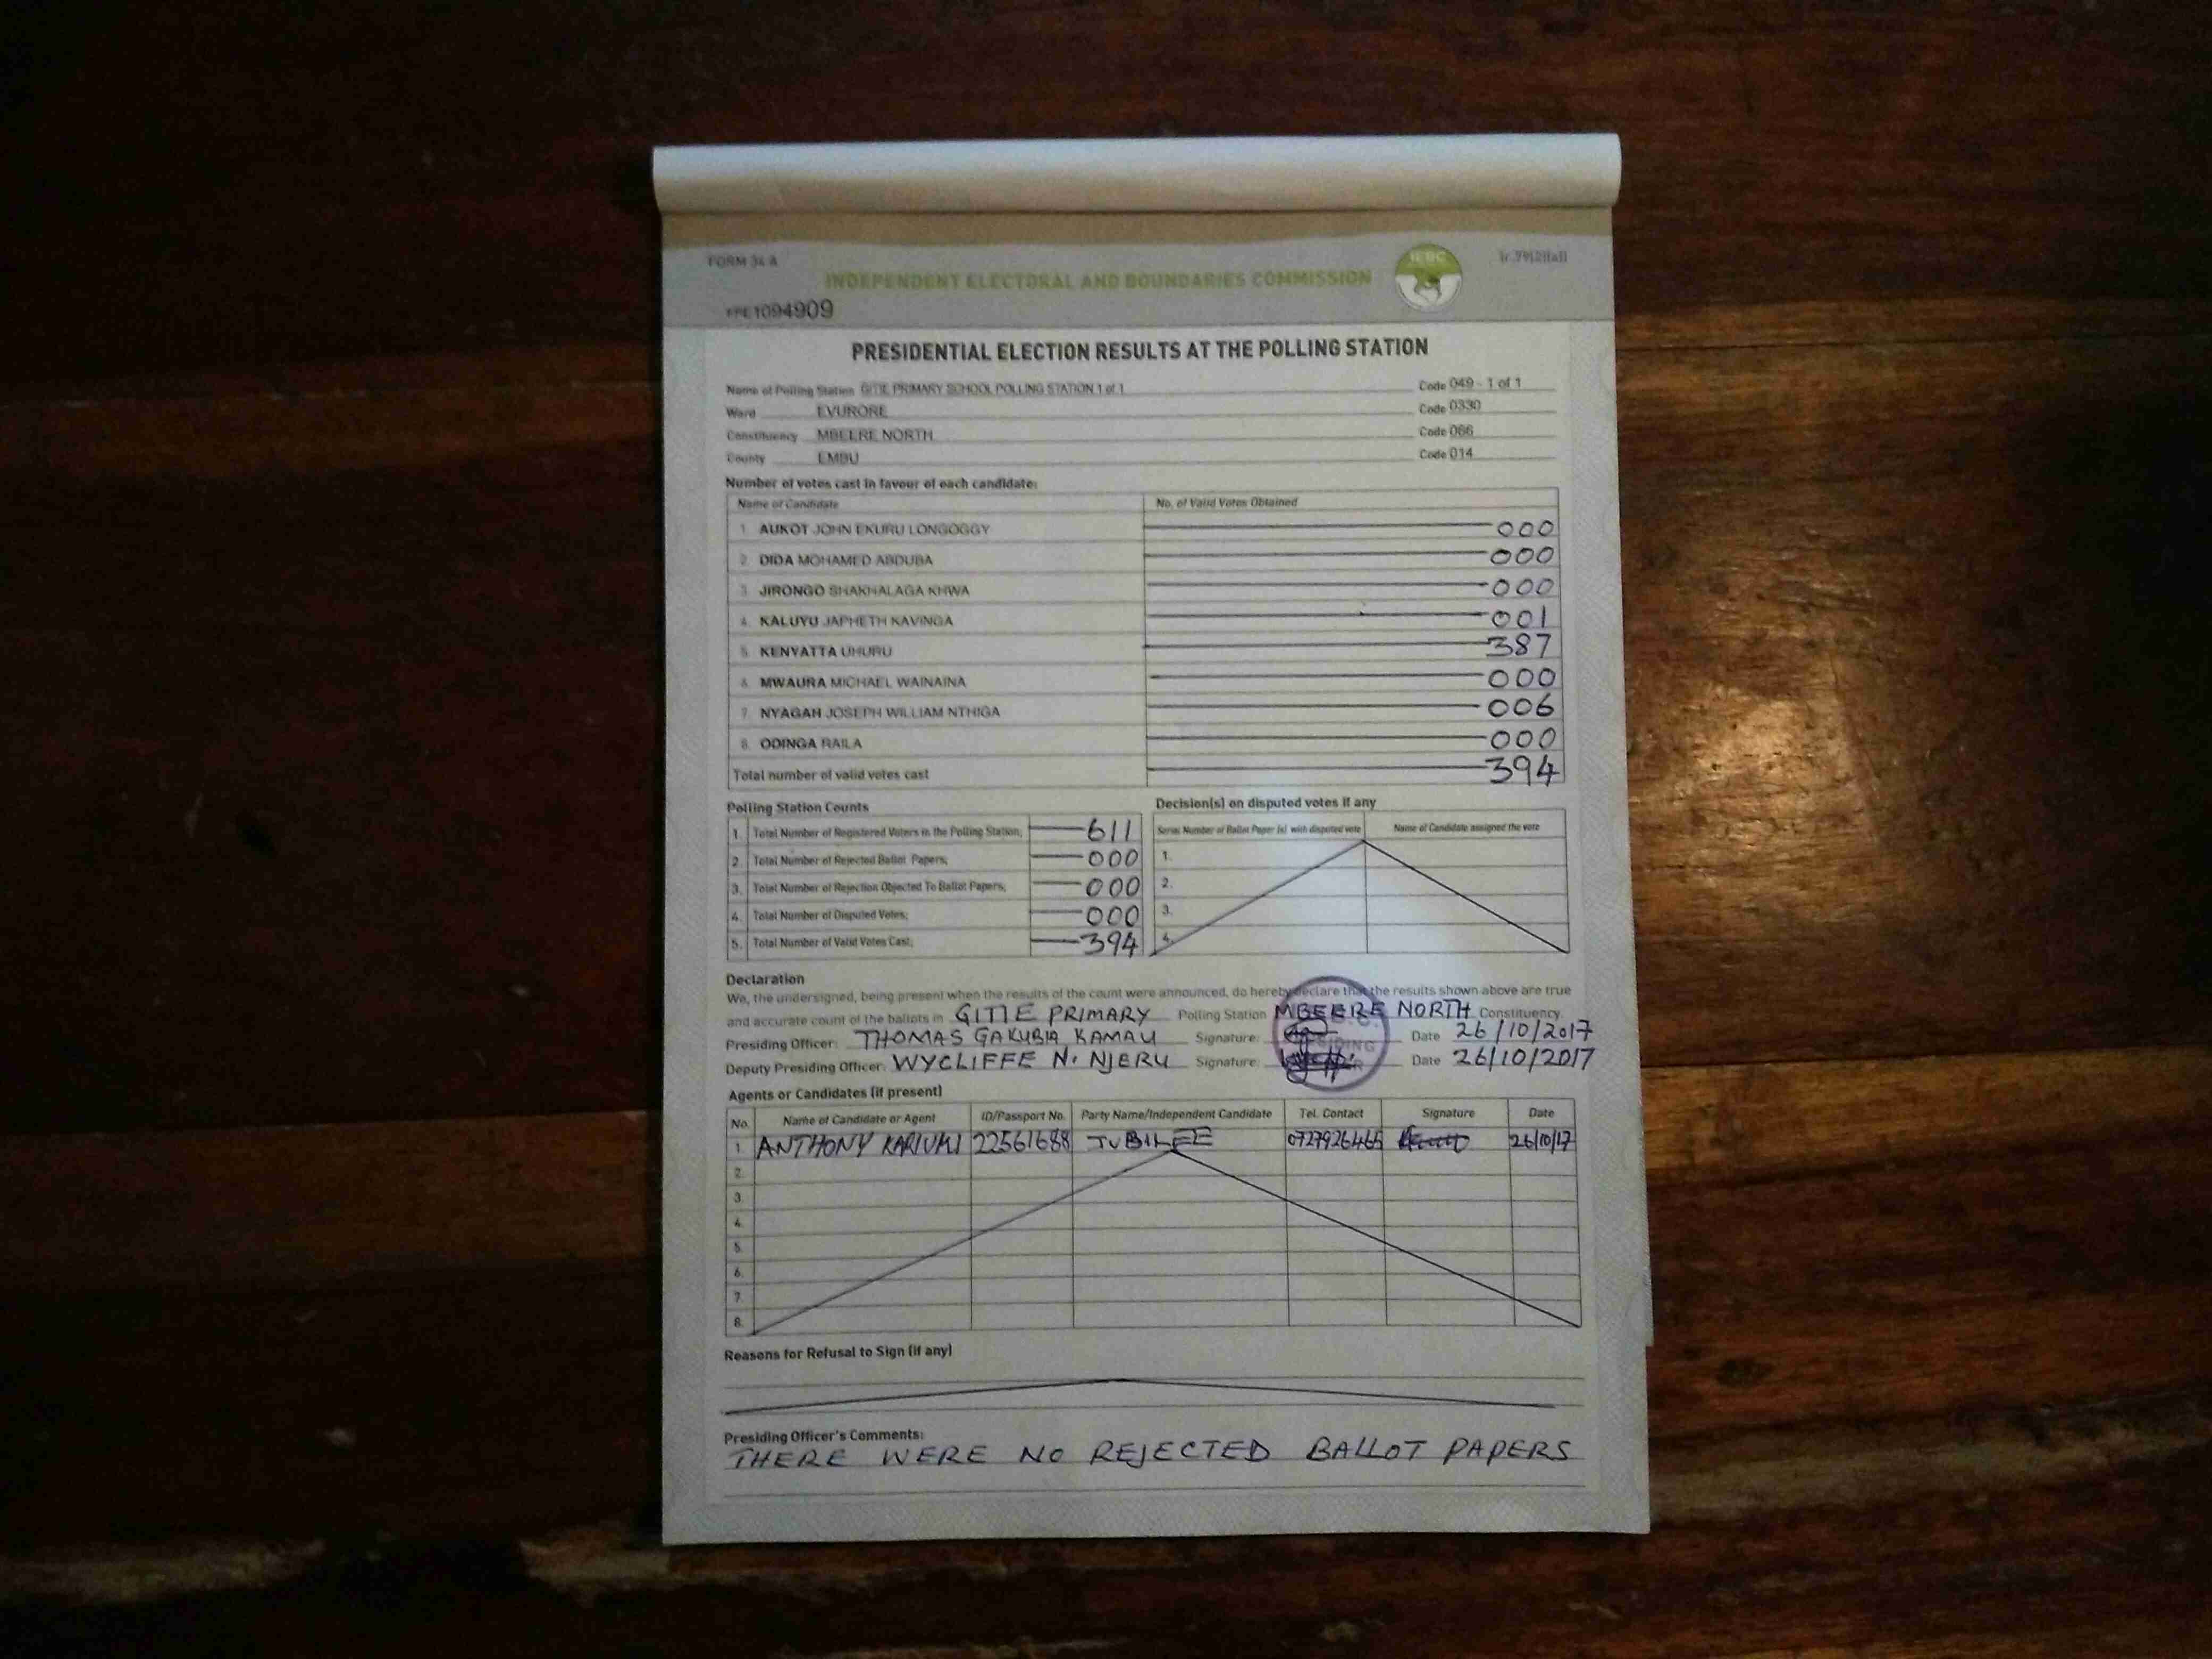 FORM 34 A
INDEPENDENT ELECTORAL AND BOUNDARIES COMMISSION
IEBC
1094909
PRESIDENTIAL ELECTION RESULTS AT THE POLLING STATION
Name of Polling Station GITIE PRIMARY SCHOOL POLLING STATION 1 of 1 Code 049 - 1 of 1
Ward EVURORE Code 0330
Constituency MBEERE NORTH Code 066
County EMBU Code 014
Number of votes cast in favour of each candidate:
Name of Candidate No. of Valid Votes Obtained
1. AUKOT JOHN EKURU LONGOGGY 000
2. DIDA MOHAMED ABDUBA 000
3. JIRONGO SHAKHALAGA KHWA 000
4. KALUYU JAPHETH KAVINGA 001
5. KENYATTA UHURU 387
6. MWAURA MICHAEL WAINAINA 000
7. NYAGAH JOSEPH WILLIAM NTHIGA 006
8. ODINGA RAILA 000
Total number of valid votes cast 394
Polling Station Counts
1. Total Number of Registered Voters in the Polling Station; 611
2. Total Number of Rejected Ballot Papers; 000
3. Total Number of Rejection Objected To Ballot Papers; 000
4. Total Number of Disputed Votes; 000
5. Total Number of Valid Votes Cast; 394
Decision(s) on disputed votes if any
Serial Number of Ballot Paper (s) with disputed vote Name of Candidate assigned the vote
1.
2.
3.
4.
Declaration
We, the undersigned, being present when the results of the count were announced, do hereby declare that the results shown above are true
and accurate count of the ballots in GITIE PRIMARY Polling Station MBEERE NORTH Constituency
Presiding Officer: THOMAS GAKUBIA KAMAU Signature: Date 26/10/2017
Deputy Presiding Officer: WYCLIFFE N. NJERU Signature: Date 26/10/2017
Agents or Candidates (if present)
No. Name of Candidate or Agent ID/Passport No. Party Name/Independent Candidate Tel. Contact Signature Date
1 ANTHONY KARIUKI 22561688 JUBILEE 0727926465 26/10/17
2.
3.
4.
5.
6.
7.
8.
Reasons for Refusal to Sign (if any)
Presiding Officer's Comments:
THERE WERE NO REJECTED BALLOT PAPERS